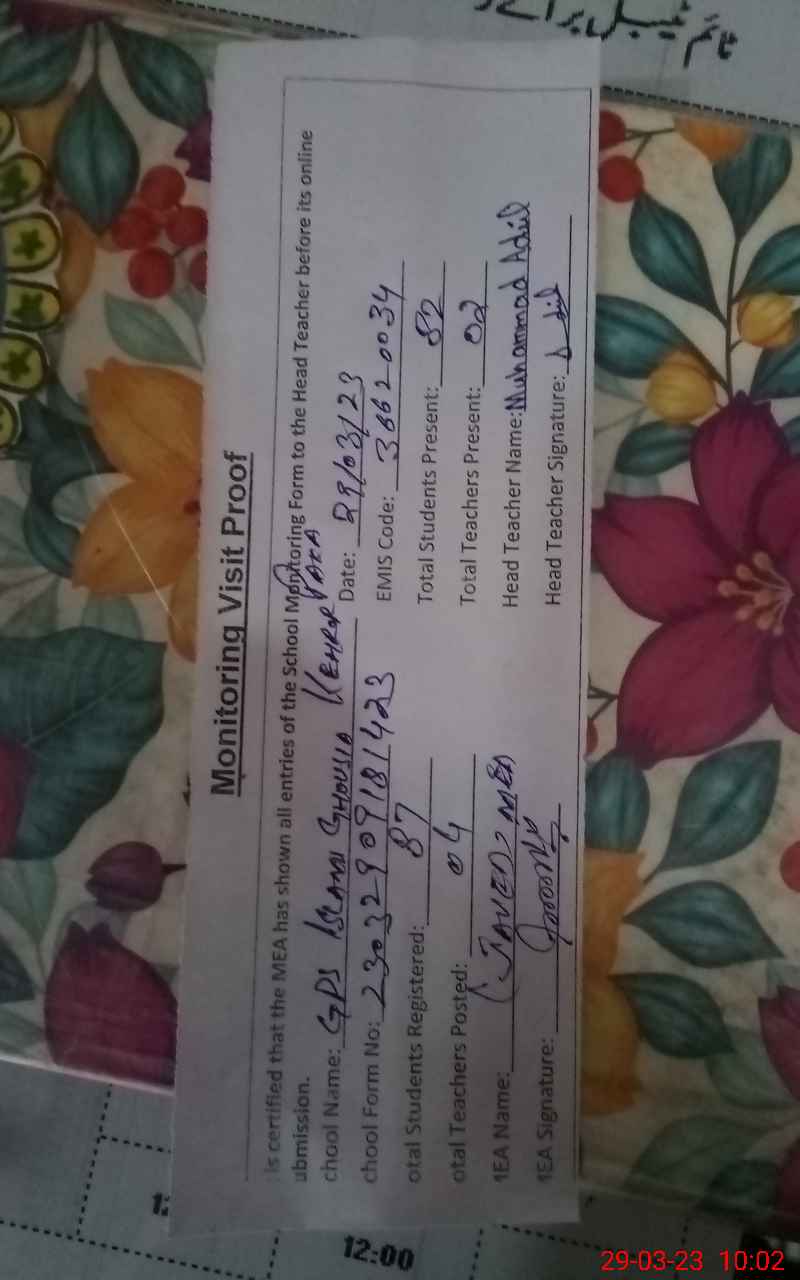 ٹائم ٹیبل برائے
Monitoring Visit Proof
is certified that the MEA has shown all entries of the School Monitoring Form to the Head Teacher before its online
ubmission.
chool Name: GPS ISLAMI GHOUSIA KEHROR PAKA
chool Form No: 23032909181423 Date: 29/03/23
EMIS Code: 36620034
otal Students Registered: 87 Total Students Present: 82
otal Teachers Posted: 04 Total Teachers Present: 02
MEA Name: JAVED MEA Head Teacher Name: Muhammad Adil
MEA Signature: Head Teacher Signature: Adil
12:00
29-03-23 10:02